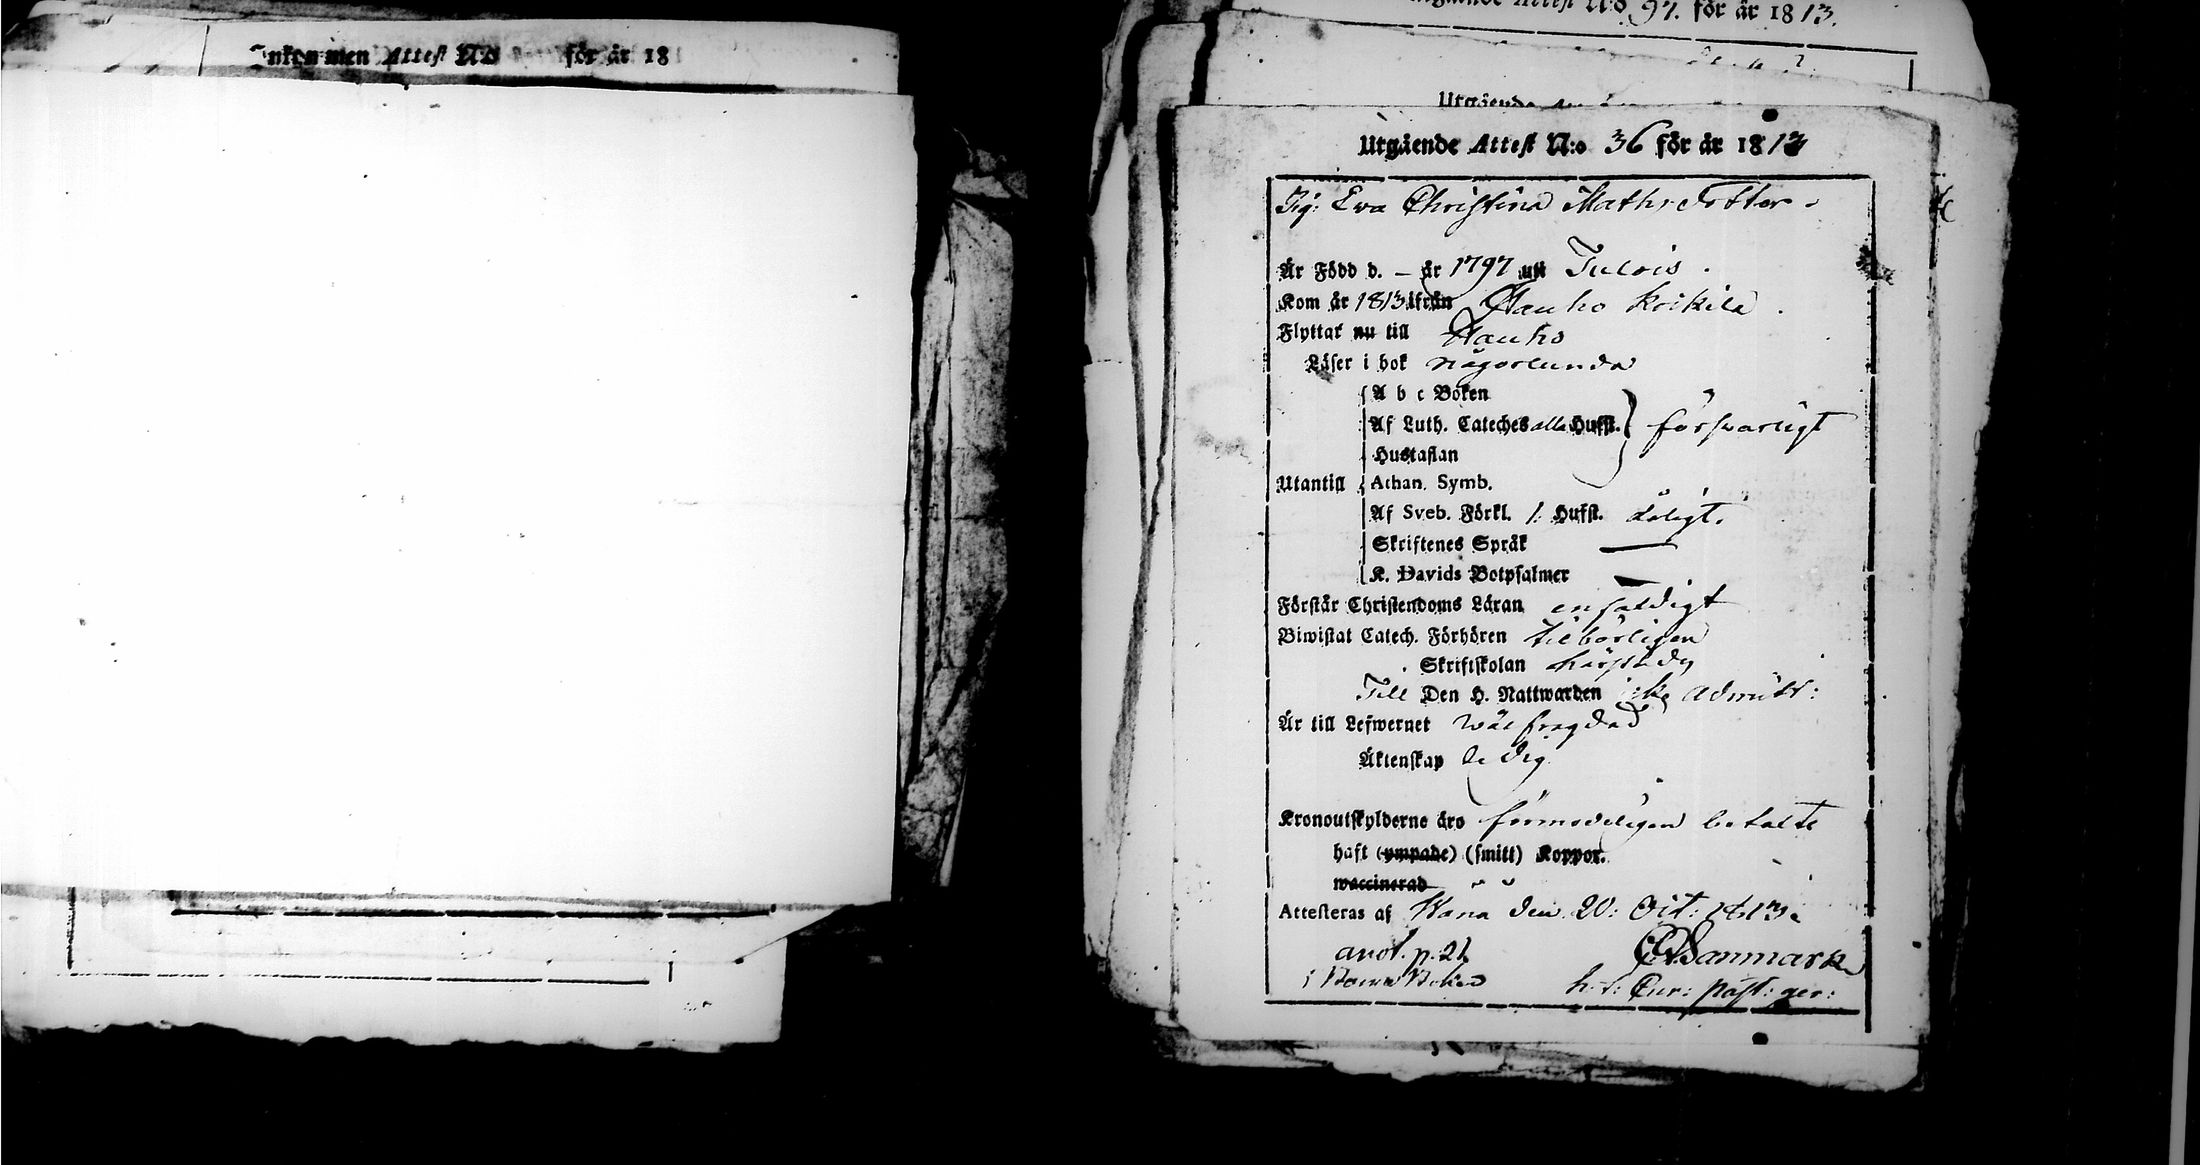 Inkommen Attest N:o för år 18
gående Attest N:o 97. för år 1813.
Utgående
Utgående Attest N:o 36 för år 1813
Pig: Ewa Christina Mathsdotter.
Är Född d. – år 1797 uti Tulois.
Kom år 1813 ifrån Hauho Kokkila.
Flyttar nu till Hauho
Läser i bok någorlunda
A b c Boken
Af Luth. Cateches alla Hufst. } förswarligt
Hustaflan
Utantill Athan. Symb.
Af Sveb. Förkl. 1: Hufst. dåligt.
Skriftenes Språk —
K. Davids Botpsalmer —
Förstår Christendoms Läran enfaldigt
Biwistat Catech. Förhören tilbörligen
Skriftskolan härstädes
Till Den H. Nattwarden icke admitt:
Är till Lefwernet wälfrägdad
Äktenskap ledig
Kronoutskylderne äro förmodeligen betalte
haft (ympade) (smitt) Koppor.
waccinerad
Attesteras af Wånå den 20: Oct: 1813.
anot. p. 21 Sanmark
i Barna Boken h. t: Cur: past: ger: